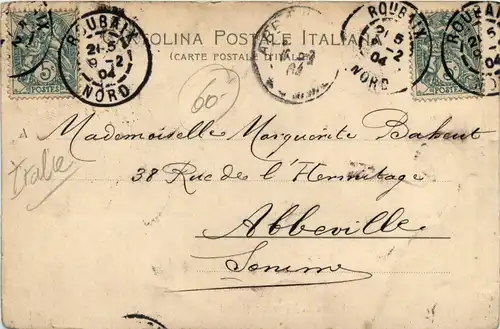 CARTOLINA POSTALE ITALIANA
(CARTE POSTALE D'ITALIE)
ROUBAIX
21 5
9-2
04
NORD
ROUBAIX
21 5
9-2
04
NORD
5
POSTES
5
POSTES
60-
Italie
A Mademoiselle Marguerite Bakeut
38 Rue de l'Hermitage
Abbeville
Somme